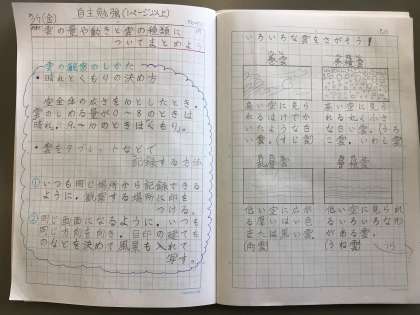 (金) 自主勉強(1ページ以上)
雲の量や動きと雲の種類に
ついてまとめよう
雲の観察のしかた
・晴れとくもりの決め方
空全体の広さを10としたとき、
雲のしめる量が0〜8のときは
晴れ、9〜10のときはくもり。
・雲をタブレットなどで
記録する方法
①いつも同じ場所から記録できる
ように、観察する場所に印を
つける。
②同じ画面になるように、いつも
同じ方向を向き、目印の建も
のなどを決めて風景も入れて
写す。
いろいろな雲をさがそう!
巻雲
巻積雲
高い空に見ら
れるはけでか
いたような白
い雲。(すじ雲)
高い空に見ら
れる丸く小さ
な白い雲。(うろ
こ雲、いわし雲
乱層雲
低い空に広が
る厚いはい色
または黒い雲。
(雨雲)
低い空に見られ
るいろいろな形
(うね雲